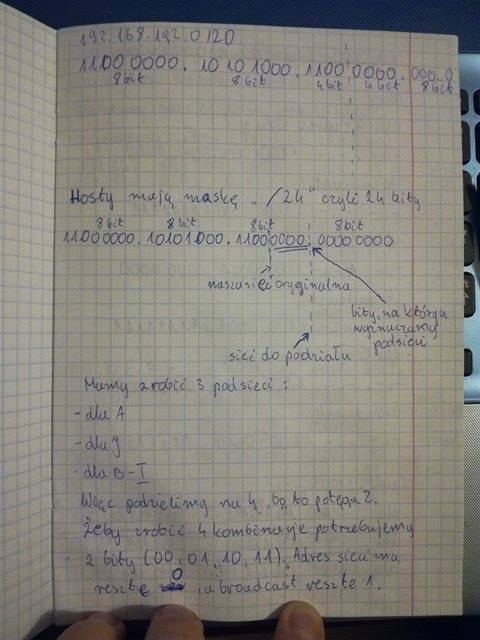 192.168.192.0/20
11000000.10101000.11000000.000..0
8bit 8bit 4bit 4bit 8bit
Hosty mają maskę „/24" czyli 24 bity
8bit 8bit 8bit 8bit
11000000.10101000.11000000.00000000
nasza sieć oryginalna
bity, na których
wyznaczamy
podsieci
sieć do podziału
Mamy zrobić 3 podsieci:
- dla A
- dla J
- dla B-I
Więc podzielimy na 4, bo to potęga 2.
Żeby zrobić 4 kombinacje potrzebujemy
2 bity (00, 01, 10, 11). Adres sieci ma
resztę 0, a broadcast resztę 1.